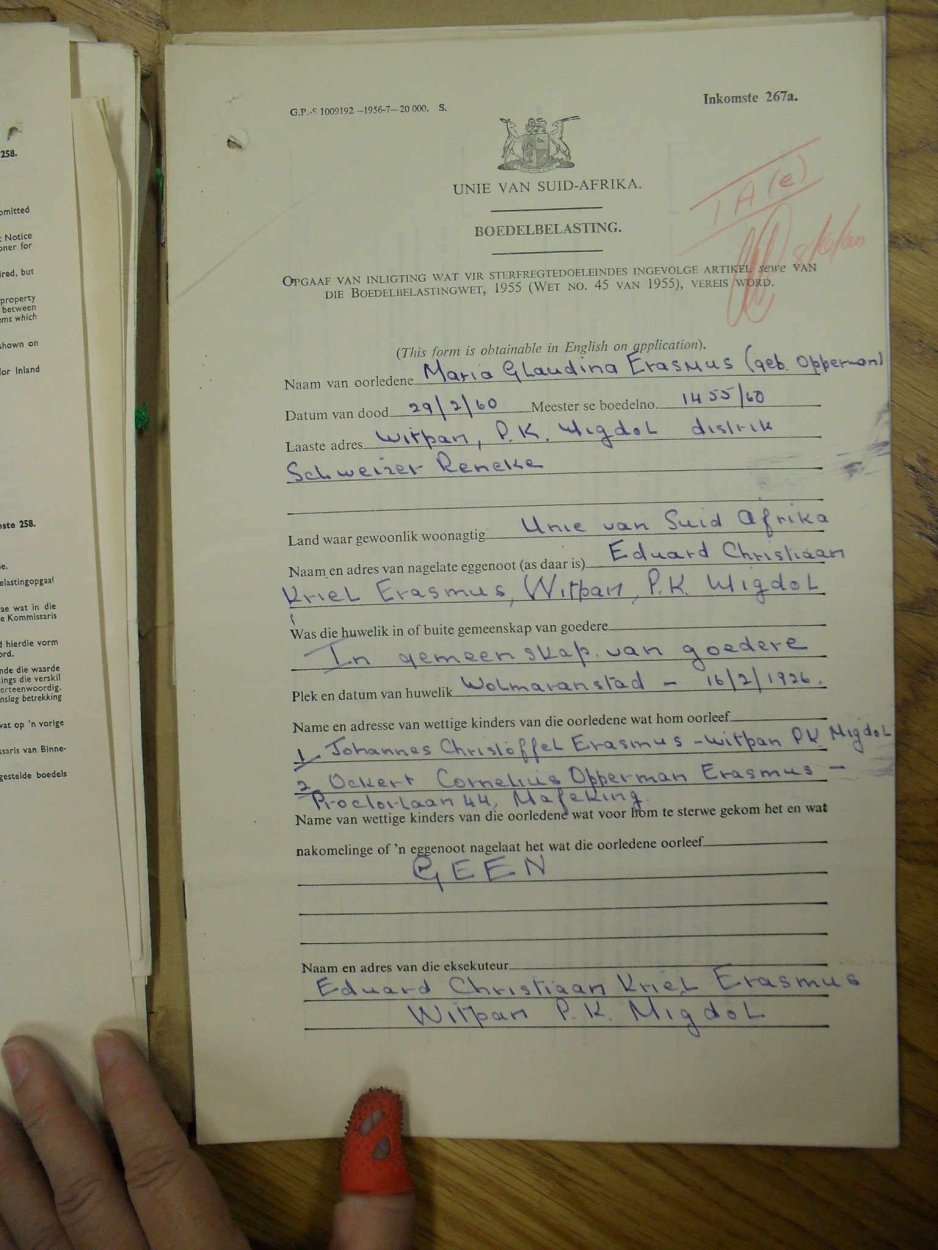 258.
omitted
Notice
oner for
ired, but
property
between
ems which
shown on
or Inland
nste 258.
e.
elastingopgaaf
ae wat in die
e Kommissaris
d hierdie vorm
ord.
nde die waarde
kings die verskil
erteenwoordig.
nslag betrekking
wat op 'n vorige
ssaris van Binne-
gestelde boedels
G.P.-S 1009192 —1956-7—20 000. S.
Inkomste 267a.
UNIE VAN SUID-AFRIKA.
BOEDELBELASTING.
1A(e)
OPGAAF VAN INLIGTING WAT VIR STERFREGTEDOELEINDES INGEVOLGE ARTIKEL sewe VAN
DIE BOEDELBELASTINGWET, 1955 (WET NO. 45 VAN 1955), VEREIS WORD.
(This form is obtainable in English on application).
Naam van oorledene Maria Glaudina Erasmus (geb. Opperman)
Datum van dood 29/2/60 Meester se boedelno. 1455/60
Laaste adres Witpan, P.K. Migdol distrik
Schweizer Reneke
Land waar gewoonlik woonagtig Unie van Suid Afrika
Naam en adres van nagelate eggenoot (as daar is) Eduard Christiaan
Kriel Erasmus, Witpan, P.K. Migdol
Was die huwelik in of buite gemeenskap van goedere
In gemeenskap van goedere
Plek en datum van huwelik Wolmaranstad - 16/2/1926.
Name en adresse van wettige kinders van die oorledene wat hom oorleef
1. Johannes Christoffel Erasmus - Witpan PK Migdol
2. Ockert Cornelius Opperman Erasmus -
Proctorlaan 44, Mafeking.
Name van wettige kinders van die oorledene wat voor hom te sterwe gekom het en wat
nakomelinge of 'n eggenoot nagelaat het wat die oorledene oorleef
GEEN
Naam en adres van die eksekuteur
Eduard Christiaan Kriel Erasmus
Witpan P.K. Migdol